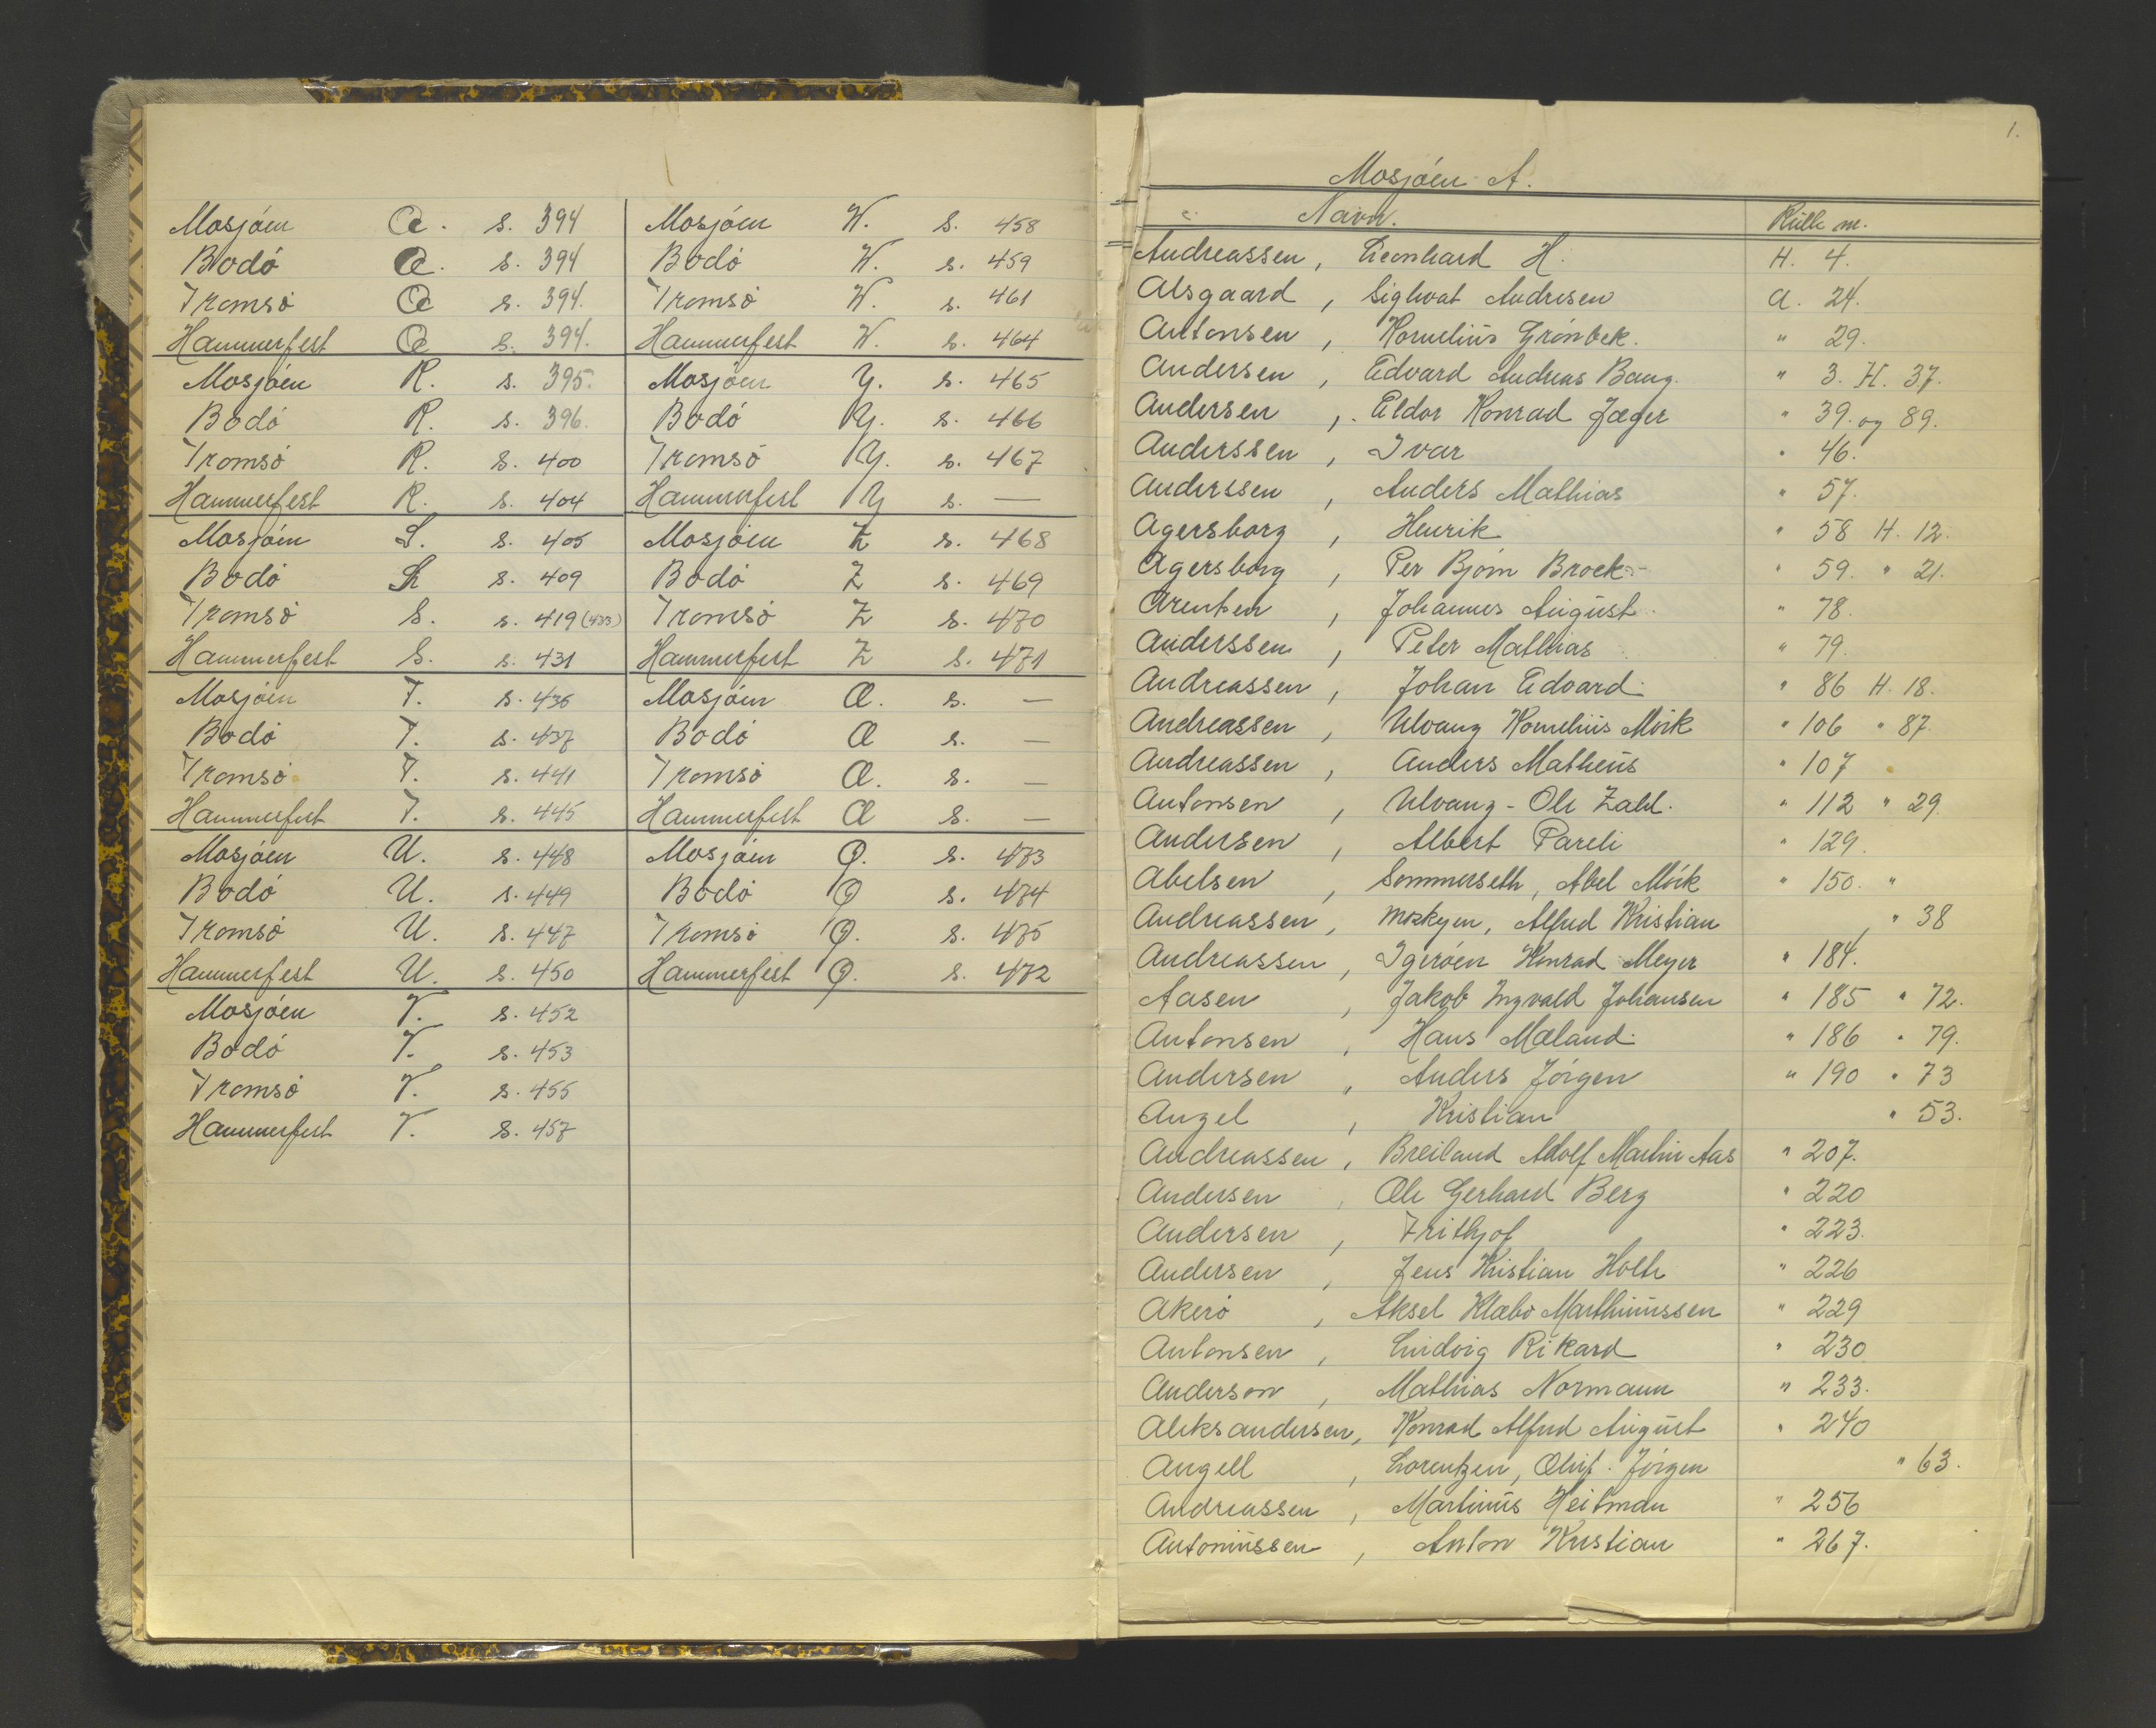 Mosjöen Q. s. 394
Bodö Q. s. 394
Tromsö Q s. 394.
Hammerfest Q s. 394.
Mosjöen R. s. 395.
Bodö R. s. 396.
Tromsö R. s. 400
Hammerfest R. s. 404
Mosjöen S. s. 405
Bodö S s. 409
Tromsö S. s. 419 (433)
Hammerfest S. s. 431
Mosjöen T. s. 436
Bodö T. s. 437
Tromsö T. s. 441
Hammerfest T. s. 445
Mosjöen U. s. 448
Bodö U. s. 449
Tromsö U. s. 447
Hammerfest U. s. 450
Mosjöen V. s. 452
Bodö V. s. 453
Tromsö V. s. 455
Hammerfest V. s. 457
Mosjöen W. s. 458
Bodö W. s. 459
Tromsö W. s. 461
Hammerfest W. s. 464
Mosjöen Y. s. 465
Bodö Y. s. 466
Tromsö Y. s. 467
Hammerfest Y s. —
Mosjöen Z s. 468
Bodö Z s. 469
Tromsö Z s. 470
Hammerfest Z s. 471
Mosjöen Æ. s. —
Bodö Æ s. —
Tromsö Æ. s. —
Hammerfest Æ s. —
Mosjöen Ø. s. 473
Bodö Ø s. 474
Tromsö Ø. s. 475
Hammerfest Ø. s. 472
1.
Mosjöen A.
Navn. Rulle nr.
Andreassen, Leonhard H. H. 4.
Alsgaard, Sighvat Andresen A. 24.
Antonsen, Kornelius Grönbek. " 29.
Andersen, Edvard Andreas Bang. " 3. H. 37.
Andersen, Eldor Konrad Jæger " 39. og 89.
Anderssen, Ivar " 46.
Anderssen, Anders Mathias " 57.
Agersborg, Henrik " 58 H. 12.
Agersborg, Per Björn Brock " 59. " 21.
Arentzen, Johannes August " 78.
Anderssen, Peter Mathias " 79.
Andreassen, Johan Edvard " 86 H. 18.
Andreassen, Ulvang Kornelius Mörk " 106 " 87.
Andreassen, Anders Matheus " 107
Antonsen, Ulvang - Ole Zahl. " 112 " 29.
Andersen, Albert Pareli " 129.
Abelsen, Sommerseth, Abel Mörk " 150. "
Andreassen, Alfred Kristian " 38
Andreassen, Igeröen Konrad Meyer " 184.
Aasen, Jakob Ingvald Johansen " 185 " 72.
Antonsen, Hans Mæland " 186 " 79.
Andersen, Anders Jörgen " 190 " 73
Angel, Kristian " 53.
Andreassen, Breiland Adolf Martin Aas " 207.
Andersen, Ole Gerhard Berg " 220
Andersen, Frithjof " 223.
Andersen, Jens Kristian Holte " 226
Akerö, Aksel Klæbo Marthinussen " 229
Antonsen, Ludvig Rikard " 230
Anderson, Mathias Normann " 233.
Aleksandersen, Konrad Alfred August " 240
Angell, Lorentzen, Oluf Jörgen " 63.
Andreassen, Martinus Heitman " 256
Antoniussen, Anton Kristian " 267.